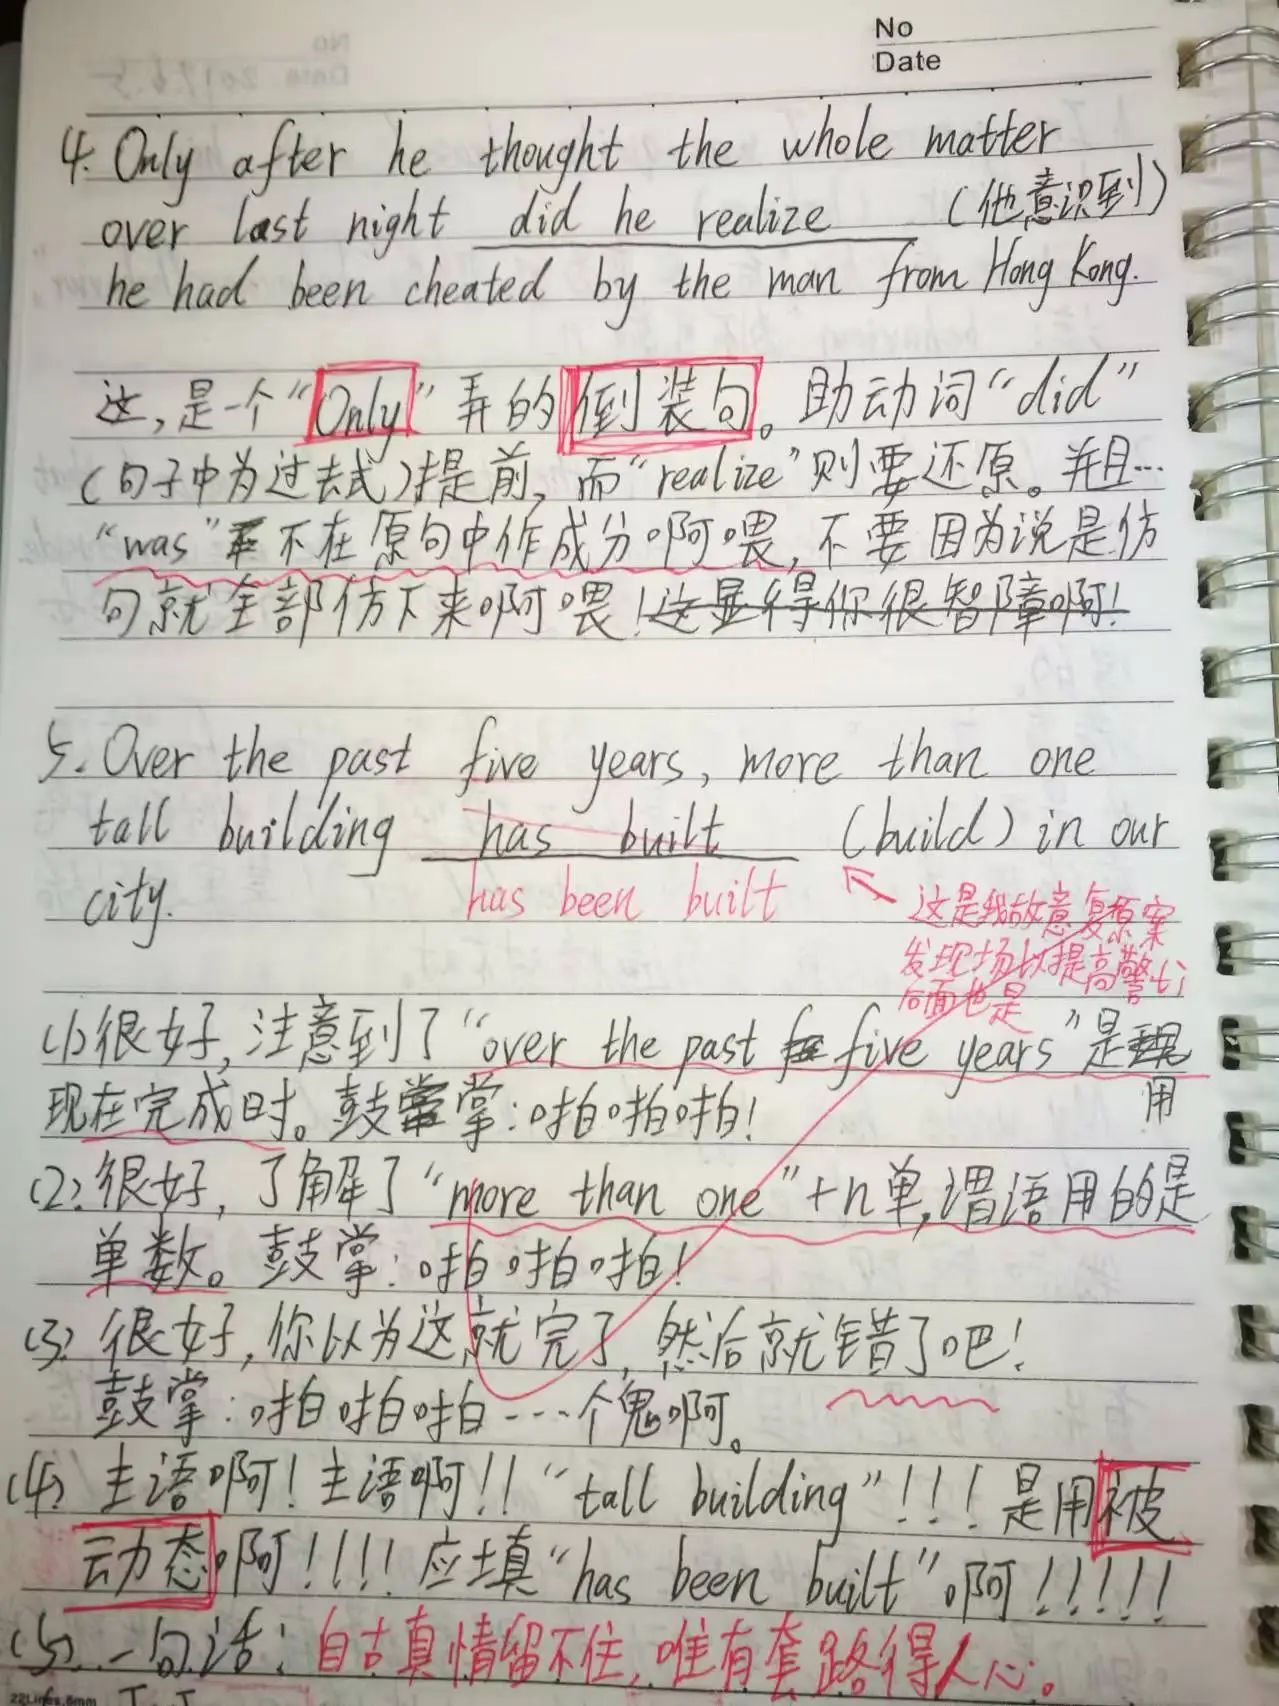 No
Date
4. Only after he thought the whole matter
over last night did he realize (他意识到)
he had been cheated by the man from Hong Kong.
这,是一个“Only”弄的倒装句。助动词“did”
(句子中为过去式)提前,而“realize”则要还原。并且…
“was”不在原句中作成分啊喂,不要因为说是仿
句就全部仿下来啊喂!这显得你很智障啊!
5. Over the past five years, more than one
tall building has built (build) in our
city. has been built
这是我故意复原案
发现场以提高警忄
后面也是
(1)很好,注意到了“over the past five years”是
用
现在完成时。鼓掌:啪啪啪!
(2)很好,了解了“more than one”+n单,谓语用的是
单数。鼓掌:啪啪啪!
(3)很好,你以为这就完了,然后就错了吧!
鼓掌:啪啪啪……个鬼啊。
(4)主语啊!主语啊!!“tall building”!!!是用被
动态啊!!!!应填“has been built”啊!!!!!
(5)一句话:自古真情留不住,唯有套路得人心。
22Lines,8mm